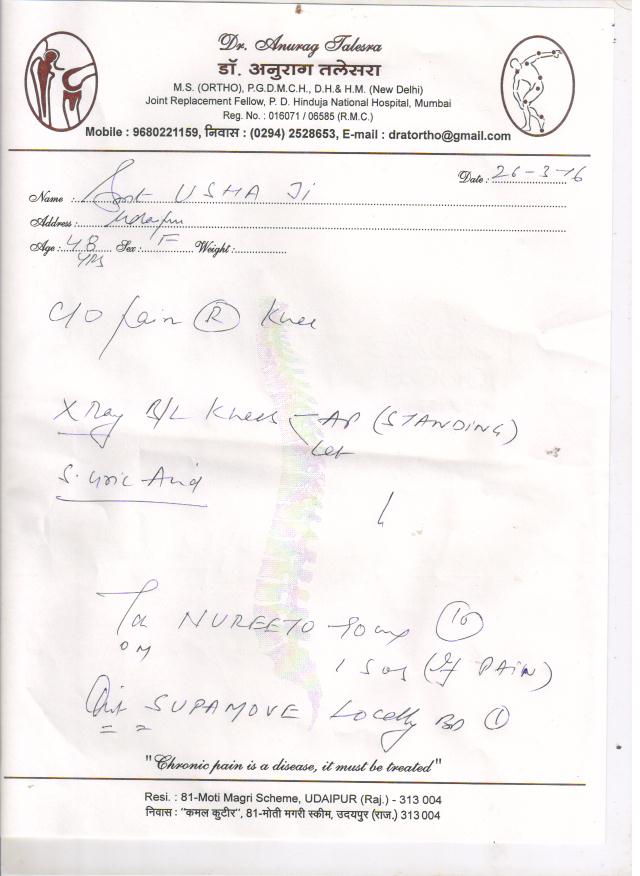 Dr. Anurag Talesra
डॉ. अनुराग तलेसरा
M.S. (ORTHO), P.G.D.M.C.H., D.H.& H.M. (New Delhi)
Joint Replacement Fellow, P. D. Hinduja National Hospital, Mumbai
Reg. No. : 016071 / 06585 (R.M.C.)
Mobile : 9680221159, निवास : (0294) 2528653, E-mail : dratortho@gmail.com
Date : 26-3-16
Name : Smt USHA Ji
Address : Udaipur
Age : 48 yrs Sex : F Weight :
C/O pain (R) Knee
X Ray B/L Knees - AP (STANDING)
Lat
S. Uric Acid
Ta NUREETO 90 mg (10)
1 SOS (If PAIN)
Oint SUPAMOVE Locally BD (1)
"Chronic pain is a disease, it must be treated"
Resi. : 81-Moti Magri Scheme, UDAIPUR (Raj.) - 313 004
निवास : "कमल कुटीर", 81-मोती मगरी स्कीम, उदयपुर (राज.) 313 004